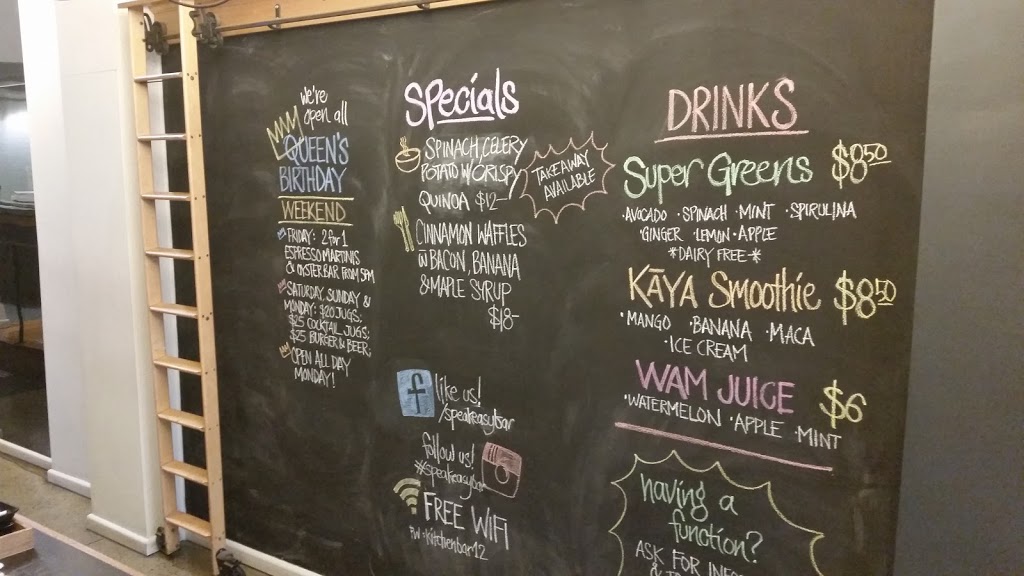 we're
open all
QUEEN'S
BIRTHDAY
WEEKEND
FRIDAY: 2 for 1
ESPRESSO MARTINIS
& OYSTER BAR FROM 5PM
SATURDAY, SUNDAY &
MONDAY: $20 JUGS,
$25 COCKTAIL JUGS,
$25 BURGER & BEER,
OPEN ALL DAY
MONDAY!
Specials
SPINACH, CELERY
POTATO W/ CRISPY
QUINOA $12-
TAKEAWAY
AVAILABLE
CINNAMON WAFFLES
W BACON, BANANA
& MAPLE SYRUP
$18-
f like us!
/speakeasybar
follow us!
#speakeasybar
FREE WIFI
PW: kitchenbar12
DRINKS
Super Greens $8.50
·AVOCADO ·SPINACH ·MINT ·SPIRULINA
·GINGER ·LEMON ·APPLE
*DAIRY FREE*
KĀYA Smoothie $8.50
·MANGO ·BANANA ·MACA
·ICE CREAM
WAM JUICE $6
·WATERMELON ·APPLE ·MINT
having a
function?
ASK FOR